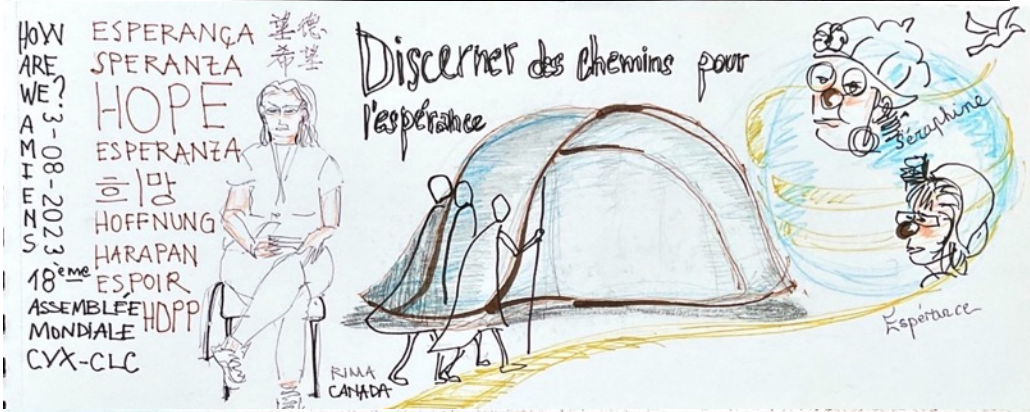 HOW
ARE
WE?
AMIENS
3-08-2023
18ème
ASSEMBLÉE
MONDIALE
CVX-CLC
ESPERANÇA
SPERANZA
HOPE
ESPERANZA
희망
HOFFNUNG
HARAPAN
ESPOIR
HOPP
望德
希望
RIMA
CANADA
Discerner des chemins pour
l'espérance
Séraphine
Espérance